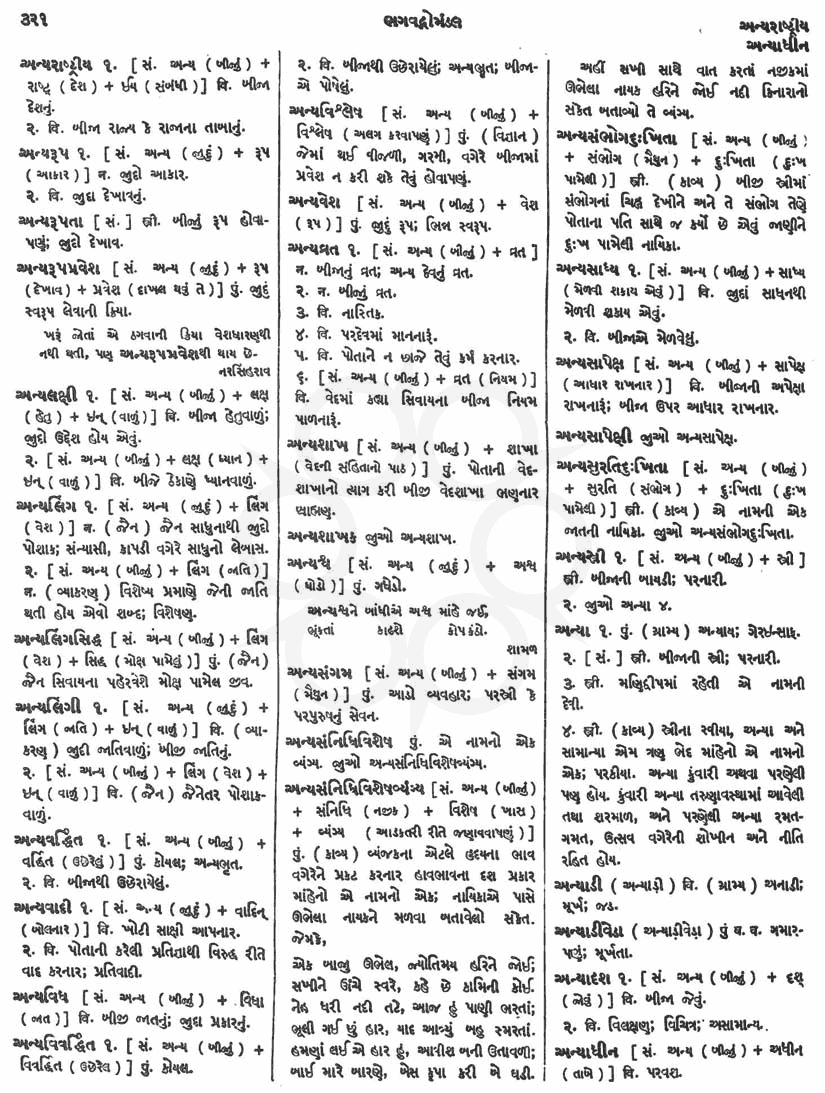 ૩૨૧
ભગવદ્ગોમંડલ
અન્યરાષ્ટ્રીય
અન્યાધીન
અન્યરાષ્ટ્રીય ૧. [ સં. અન્ય ( બીજું ) +
રાષ્ટ્ર ( દેશ ) + ઈય ( સંબંધી ) ] વિ. બીજા
દેશનું.
૨. વિ. બીજા રાજ્ય કે રાજાના તાબાનું.
અન્યરૂપ ૧. [ સં. અન્ય ( જુદું ) + રૂપ
( આકાર ) ] ન. જુદો આકાર.
૨. વિ. જુદા દેખાવનું.
અન્યરૂપતા [ સં. ] સ્ત્રી. બીજું રૂપ હોવા-
પણું; જુદો દેખાવ.
અન્યરૂપપ્રવેશ [ સં. અન્ય ( જુદું ) + રૂપ
( દેખાવ ) + પ્રવેશ ( દાખલ થવું તે ) ] પું. જુદું
સ્વરૂપ લેવાની ક્રિયા.
ખરૂં જોતાં એ ઠગવાની ક્રિયા વેશધારણથી
નથી થતી, પણ અન્યરૂપપ્રવેશથી થાય છે–
નરસિંહરાવ
અન્યલક્ષી ૧. [ સં. અન્ય ( બીજું ) + લક્ષ
( હેતુ ) + ઇન્ ( વાળું ) ] વિ. બીજા હેતુવાળું;
જુદો ઉદ્દેશ હોય એવું.
૨. [ સં. અન્ય ( બીજું ) + લક્ષ ( ધ્યાન ) +
ઇન્ ( વાળું ) ] વિ. બીજે ઠેકાણે ધ્યાનવાળું.
અન્યલિંગ ૧. [ સં. અન્ય ( જુદું ) + લિંગ
( વેશ ) ] ન. ( જૈન ) જૈન સાધુનાથી જુદો
પોશાક; સંન્યાસી, કાપડી વગેરે સાધુનો લેબાસ.
૨. [ સં. અન્ય ( બીજું ) + લિંગ ( જાતિ ) ]
ન. ( વ્યાકરણ ) વિશેષ્ય પ્રમાણે જેની જાતિ
થતી હોય એવો શબ્દ; વિશેષણ.
અન્યલિંગસિદ્ધ [ સં. અન્ય ( બીજું ) + લિંગ
( વેશ ) + સિદ્ધ ( મોક્ષ પામેલું ) ] પું. ( જૈન )
જૈન સિવાયના પહેરવેશે મોક્ષ પામેલ જીવ.
અન્યલિંગી ૧. [ સં. અન્ય ( જુદું ) +
લિંગ ( જાતિ ) + ઇન્ ( વાળું ) ] વિ. ( વ્યા-
કરણ ) જુદી જાતિવાળું; બીજી જાતિનું.
૨. [ સં. અન્ય ( બીજું ) + લિંગ ( વેશ ) +
ઇન્ ( વાળું ) ] વિ. ( જૈન ) જૈનેતર પોશાક-
વાળું.
અન્યવર્દ્ધિત ૧. [ સં. અન્ય ( બીજું ) +
વર્દ્ધિત ( ઉછેરેલું ) ] પું. કોયલ; અન્યભૃત.
૨. વિ. બીજાથી ઉછેરાયેલું.
અન્યવાદી ૧. [ સં. અન્ય ( જુદું ) + વાદિન્
( બોલનાર ) ] વિ. ખોટી સાક્ષી આપનાર.
૨. વિ. પોતાની કરેલી પ્રતિજ્ઞાથી વિરુદ્ધ રીતે
વાદ કરનાર; પ્રતિવાદી.
અન્યવિધ [ સં. અન્ય ( બીજું ) + વિધા
( જાત ) ] વિ. બીજી જાતનું; જુદા પ્રકારનું.
અન્યવિવર્દ્ધિત ૧. [ સં. અન્ય ( બીજું ) +
વિવર્દ્ધિત ( ઉછેરેલ ) ] પું. કોયલ.
૨. વિ. બીજાથી ઉછેરાયેલું; અન્યભૃત; બીજા-
એ પોષેલું.
અન્યવિશ્લેષ [ સં. અન્ય ( બીજું ) +
વિશ્લેષ ( અલગ કરવાપણું ) ] પું. ( વિજ્ઞાન )
જેમાં થઈ વીજળી, ગરમી, વગેરે બીજામાં
પ્રવેશ ન કરી શકે તેવું હોવાપણું.
અન્યવેશ [ સં. અન્ય ( બીજું ) + વેશ
( રૂપ ) ] પું. જુદું રૂપ; ભિન્ન સ્વરૂપ.
અન્યવ્રત ૧. [ સં. અન્ય ( બીજું ) + વ્રત ]
ન. બીજાનું વ્રત; અન્ય દેવનું વ્રત.
૨. ન. બીજું વ્રત.
૩. વિ. નાસ્તિક.
૪. વિ. પરદેવમાં માનનારૂં.
૫. વિ. પોતાને ન છાજે તેવું કર્મ કરનાર.
૬. [ સં. અન્ય ( બીજું ) + વ્રત ( નિયમ ) ]
વિ. વેદમાં કહ્યા સિવાયના બીજા નિયમ
પાળનારૂં.
અન્યશાખ [ સં. અન્ય ( બીજું ) + શાખા
( વેદની સંહિતાનો પાઠ ) ] પું. પોતાની વેદ-
શાખાનો ત્યાગ કરી બીજી વેદશાખા ભણનાર
બ્રાહ્મણ.
અન્યશાખક જુઓ અન્યશાખ.
અન્યશ્વ [ સં. અન્ય ( જુદું ) + અશ્વ
( ઘોડો ) ] પું. ગધેડો.
અન્યશ્વને બાંધીએ અશ્વ માંહે જઈ,
ભૂંકતાં કાઢશે કોપકંઠો.
શામળ
અન્યસંગમ [ સં. અન્ય ( બીજું ) + સંગમ
( મૈથુન ) ] પું. આડો વ્યવહાર; પરસ્ત્રી કે
પરપુરુષનું સેવન.
અન્યસંનિધિવિશેષ પું. એ નામનો એક
વ્યંગ્ય. જુઓ અન્યસંનિધિવિશેષવ્યંગ્ય.
અન્યસંનિધિવિશેષવ્યંગ્ય [ સં. અન્ય ( બીજું )
+ સંનિધિ ( નજીક ) + વિશેષ ( ખાસ )
+ વ્યંગ્ય ( આડકતરી રીતે જણાવવાપણું ) ]
પું. ( કાવ્ય ) વ્યંજકના એટલે હૃદયના ભાવ
વગેરેને પ્રકટ કરનાર હાવભાવના દશ પ્રકાર
માંહેનો એ નામનો એક; નાયિકાએ પાસે
ઉભેલા નાયકને મળવા બતાવેલો સંકેત.
જેમકે,
એક બાજુ ઉભેલ, જ્યોતિમય હરિને જોઈ;
સખીને ઉંચે સ્વરે, કહે છે કામિની કોઈ.
નેહ ધરી નદી તટે, આજ હું પાણી ભરતાં;
ભૂલી ગઈ છું હાર, યાદ આવ્યું બહુ સ્મરતાં.
હમણાં લઈ એ હાર હું, આવીશ બની ઉતાવળી;
બાઈ મારે બારણે, બેસ કૃપા કરી બે ઘડી.
અહીં સખી સાથે વાત કરતાં નજીકમાં
ઊભેલા નાયક હરિને જોઈ નદી કિનારાનો
સંકેત બતાવ્યો તે વ્યંગ્ય.
અન્યસંભોગદુઃખિતા [ સં. અન્ય ( બીજું )
+ સંભોગ ( મૈથુન ) + દુઃખિતા ( દુઃખ
પામેલી ) ] સ્ત્રી. ( કાવ્ય ) બીજી સ્ત્રીમાં
સંભોગનાં ચિહ્ન દેખીને અને તે સંભોગ તેણે
પોતાના પતિ સાથે જ કર્યો છે એવું જાણીને
દુઃખ પામેલી નાયિકા.
અન્યસાધ્ય ૧. [ સં. અન્ય ( બીજું ) + સાધ્ય
( મેળવી શકાય એવું ) ] વિ. જુદાં સાધનથી
મેળવી શકાય એવું.
૨. વિ. બીજાએ મેળવેલું.
અન્યસાપેક્ષ [ સં. અન્ય ( બીજું ) + સાપેક્ષ
( આધાર રાખનાર ) ] વિ. બીજાની અપેક્ષા
રાખનારૂં; બીજા ઉપર આધાર રાખનાર.
અન્યસાપેક્ષી જુઓ અન્યસાપેક્ષ.
અન્યસુરતિદુઃખિતા [ સં. અન્ય ( બીજું )
+ સુરતિ ( સંભોગ ) + દુઃખિતા ( દુઃખ
પામેલી ) ] સ્ત્રી. ( કાવ્ય ) એ નામની એક
જાતની નાયિકા. જુઓ અન્યસંભોગદુઃખિતા.
અન્યસ્ત્રી ૧. [ સં. અન્ય ( બીજું ) + સ્ત્રી ]
સ્ત્રી. બીજાની બાયડી; પરનારી.
૨. જુઓ અન્યા ૪.
અન્યા ૧. પું. ( ગ્રામ્ય ) અન્યાય; ગેરઇન્સાફ.
૨. [ સં. ] સ્ત્રી. બીજાની સ્ત્રી; પરનારી.
૩. સ્ત્રી. મણિદ્વીપમાં રહેતી એ નામની
દેવી.
૪. સ્ત્રી. ( કાવ્ય ) સ્ત્રીના સ્વીયા, અન્યા અને
સામાન્યા એમ ત્રણ ભેદ માંહેનો એ નામનો
એક; પરકીયા. અન્યા કુંવારી અથવા પરણેલી
પણ હોય. કુંવારી અન્યા તરુણાવસ્થામાં આવેલી
તથા શરમાળ, અને પરણેલી અન્યા રમત-
ગમત, ઉત્સવ વગેરેની શોખીન અને નીતિ
રહિત હોય.
અન્યાડી ( અન્યાડ઼ી ) વિ. ( ગ્રામ્ય ) અનાડી;
મૂર્ખ; જડ.
અન્યાડીવેડા ( અન્યાડ઼ીવેડ઼ા ) પું બ. વ. ગમાર-
પણું; મૂર્ખતા.
અન્યાદશ ૧. [ સં. અન્ય ( બીજું ) + દશ્
( જેવું ) ] વિ. બીજા જેવું.
૨. વિ. વિલક્ષણ; વિચિત્ર; અસામાન્ય.
અન્યાધીન [ સં. અન્ય ( બીજું ) + અધીન
( તાબે ) ] વિ. પરવશ.